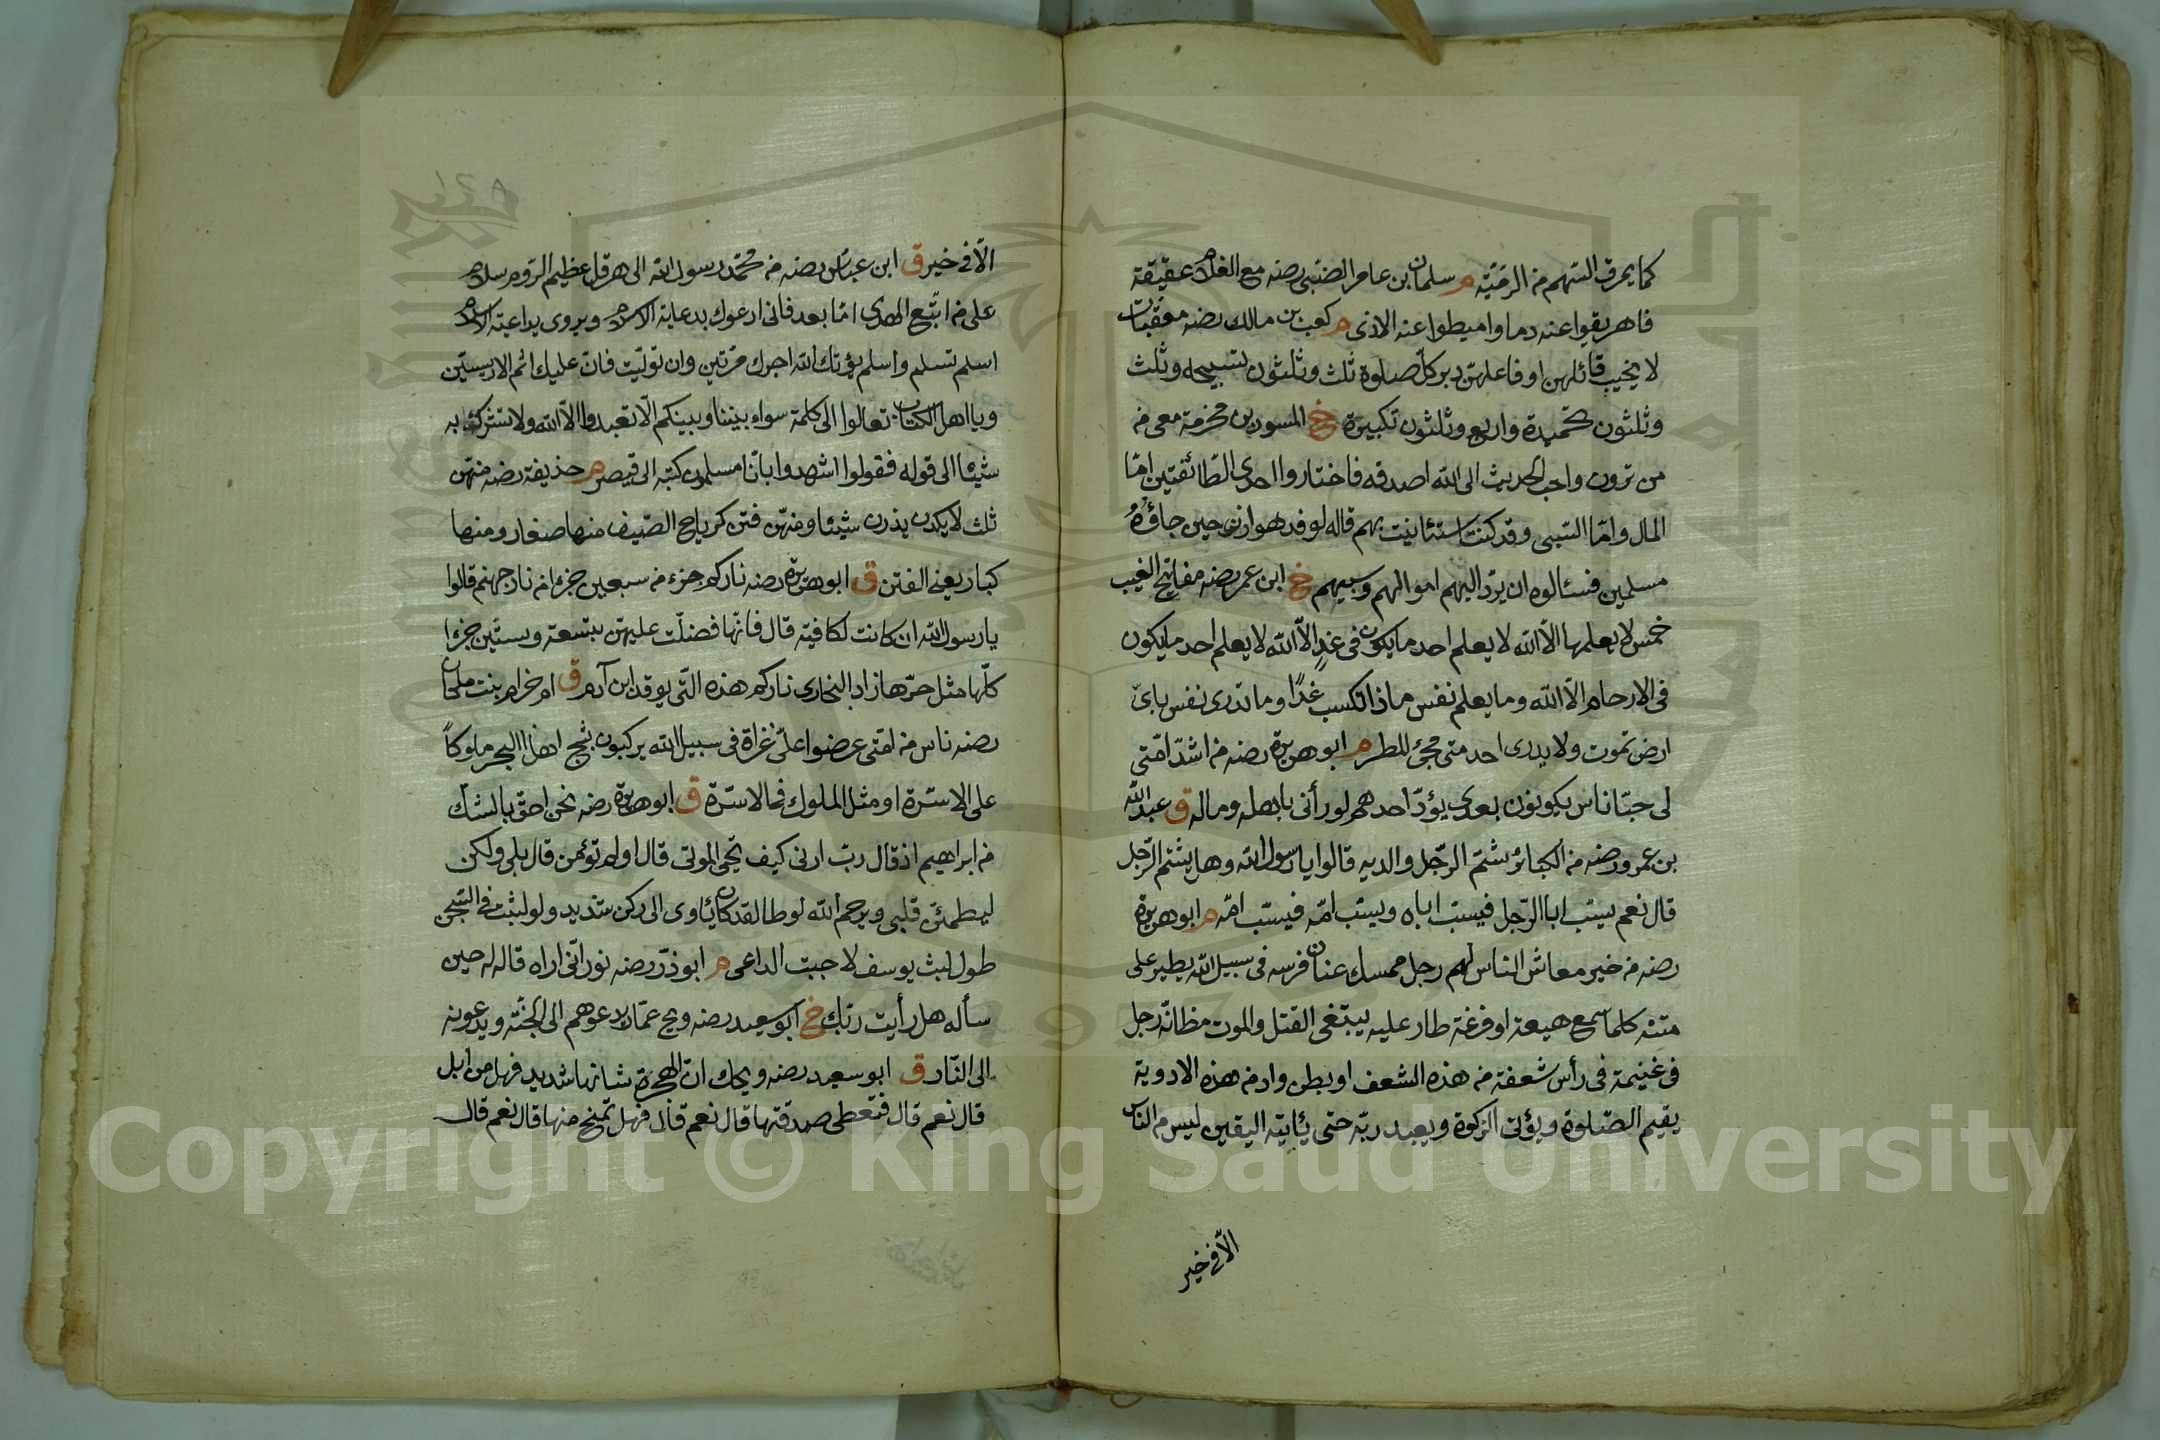 كما يمرق السهم من الرمية م سلمان بن عامر الضبي رضه مع الغلام عقيقة
فاهريقوا عنه دما واميطوا عنه الاذى م كعب بن مالك رضه معقبات
لا يخيب قائلهن او فاعلهن دبر كل صلوة ثلث وثلثون تسبيحة وثلث
وثلثون تحميدة واربع وثلثون تكبيرة خ المسور بن مخرمة معى من
من ترون واحب الحديث الى الله اصدقه فاختاروا احدى الطائفتين اما
المال واما السبى وقد كنت استانيت بهم قاله لوفد هوازن حين جاؤه
مسلمين فسئالوه ان يرد اليهم اموالهم وسبيهم خ ابن عمر رضه مفاتيح الغيب
خمس لا يعلمها الا الله لا يعلم احد ما يكون فى غد الا الله لا يعلم احد ما يكون
فى الارحام الا الله وما يعلم نفس ماذا تكسب غدا وما تدرى نفس باى
ارض تموت ولا يدرى احد متى مجئ المطر م ابو هريرة رضه من اشد امتى
لى حبا ناس يكونون بعدى يود احدهم لو رأنى باهله وماله ق عبد الله
بن عمرو رضه من الكبائر شتم الرجل والديه قالوا يا رسول الله وهل يشتم الرجل
قال نعم يسب ابا الرجل فيسب اباه ويسب امه فيسب امه م ابو هريرة
رضه من خير معاش الناس لهم رجل ممسك عنان فرسه فى سبيل الله يطير على
متنه كلما سمع هيعة او فزعة طار عليه يبتغى القتل والموت مظانه رجل
فى غنيمة فى رأس شعفة من هذه الشعف او بطن واد من هذه الاودية
يقيم الصلوة ويؤتى الزكوة ويعبد ربه حتى يئاتيه اليقين ليس من الناس
الا فى خير
الا فى خير ق ابن عباس رضه من محمد رسول الله الى هرقل عظيم الروم سلام
على من اتبع الهدى اما بعد فانى ادعوك بدعاية الاسلام ويروى بداعية الاسلام
اسلم تسلم واسلم يؤتك الله اجرك مرتين وان توليت فان عليك اثم الاريسيين
ويا اهل الكتاب تعالوا الى كلمة سواء بيننا وبينكم الا تعبدوا الا الله ولا نشرك به
شيئا الى قوله فقولوا اشهدوا بانا مسلمون كتبه الى قيصر م حذيفة رضه منهن
ثلث لا يكدن يذرن شيئا ومنهن فتن كرياح الصيف منها صغار ومنها
كبار يعنى الفتن ق ابو هريرة رضه ناركم جزء من سبعين جزءا من نار جهنم قالوا
يا رسول الله ان كانت لكافية قال فانها فضلت عليهن بتسعة وستين جزءا
كلها مثل حرها زاد البخارى ناركم هذه التى يوقد ابن آدم ق ام حرام بنت ملحان
رضه ناس من امتى عرضوا على غزاة فى سبيل الله يركبون ثبج هذا البحر ملوكا
على الاسرة او مثل الملوك على الاسرة ق ابو هريرة رضه نحن احق بالشك
من ابراهيم اذ قال رب ارنى كيف تحيى الموتى قال اولم تؤمن قال بلى ولكن
ليطمئن قلبى ويرحم الله لوطا لقد كان يئاوى الى ركن شديد ولو لبثت فى السجن
طول لبث يوسف لاجبت الداعى م ابو ذر رضه نور انى اراه قاله له حين
سأله هل رأيت ربك خ ابو سعيد رضه ويح عمار يدعوهم الى الجنة ويدعونه
الى النار ق ابو سعيد رضه ويحك ان الهجرة شانها شديد فهل من ابل
قال نعم قال فتعطى صدقتها قال نعم قال فهل تمنح منها قال نعم قال
Copyright © King Saud University